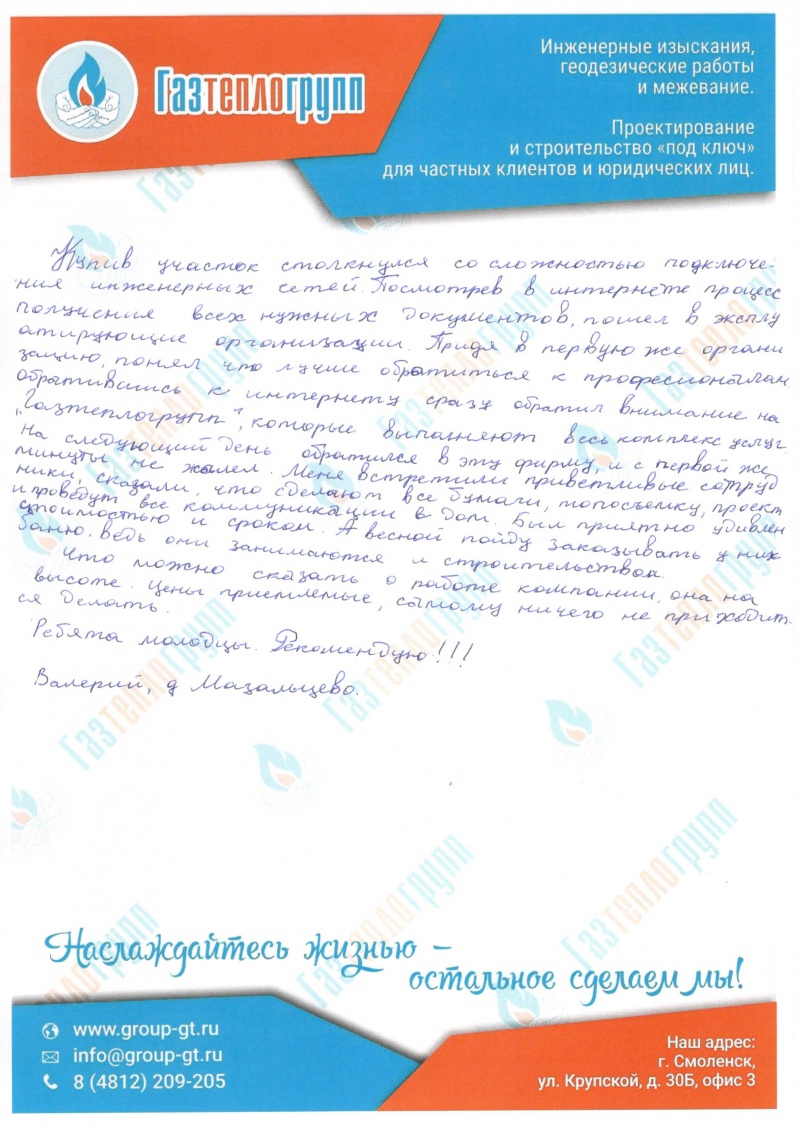 Газтеплогрупп
Инженерные изыскания,
геодезические работы
и межевание.
Проектирование
и строительство «под ключ»
для частных клиентов и юридических лиц.
Купив участок столкнулся со сложностью подключе-
ния инженерных сетей. Посмотрев в интернете процесс
получения всех нужных документов, пошел в эксплу
атирующие организации. Придя в первую же органи
зацию, понял что лучше обратиться к професионалам
обратившись к интернету сразу обратил внимание на
„Газтеплогрупп", которые выполняют весь комплекс услуг.
На следующий день обратился в эту фирму, и с первой же
минуты не жалел. Меня встретили приветливые сотруд
ники, сказали, что сделают все бумаги, топосъемку, проект
и проведут все коммуникации в дом. Был приятно удивлен
стоимостью и сроком. А весной пойду заказывать у них
баню. Ведь они занимаются и строительством.
Что можно сказать о работе компании, она на
высоте. Цены приемлемые, самому ничего не приходит
ся делать.
Ребята молодцы. Рекомендую!!!
Валерий, д Мазальцево.
Наслаждайтесь жизнью –
остальное сделаем мы!
www.group-gt.ru
info@group-gt.ru
8 (4812) 209-205
Наш адрес:
г. Смоленск,
ул. Крупской, д. 30Б, офис 3